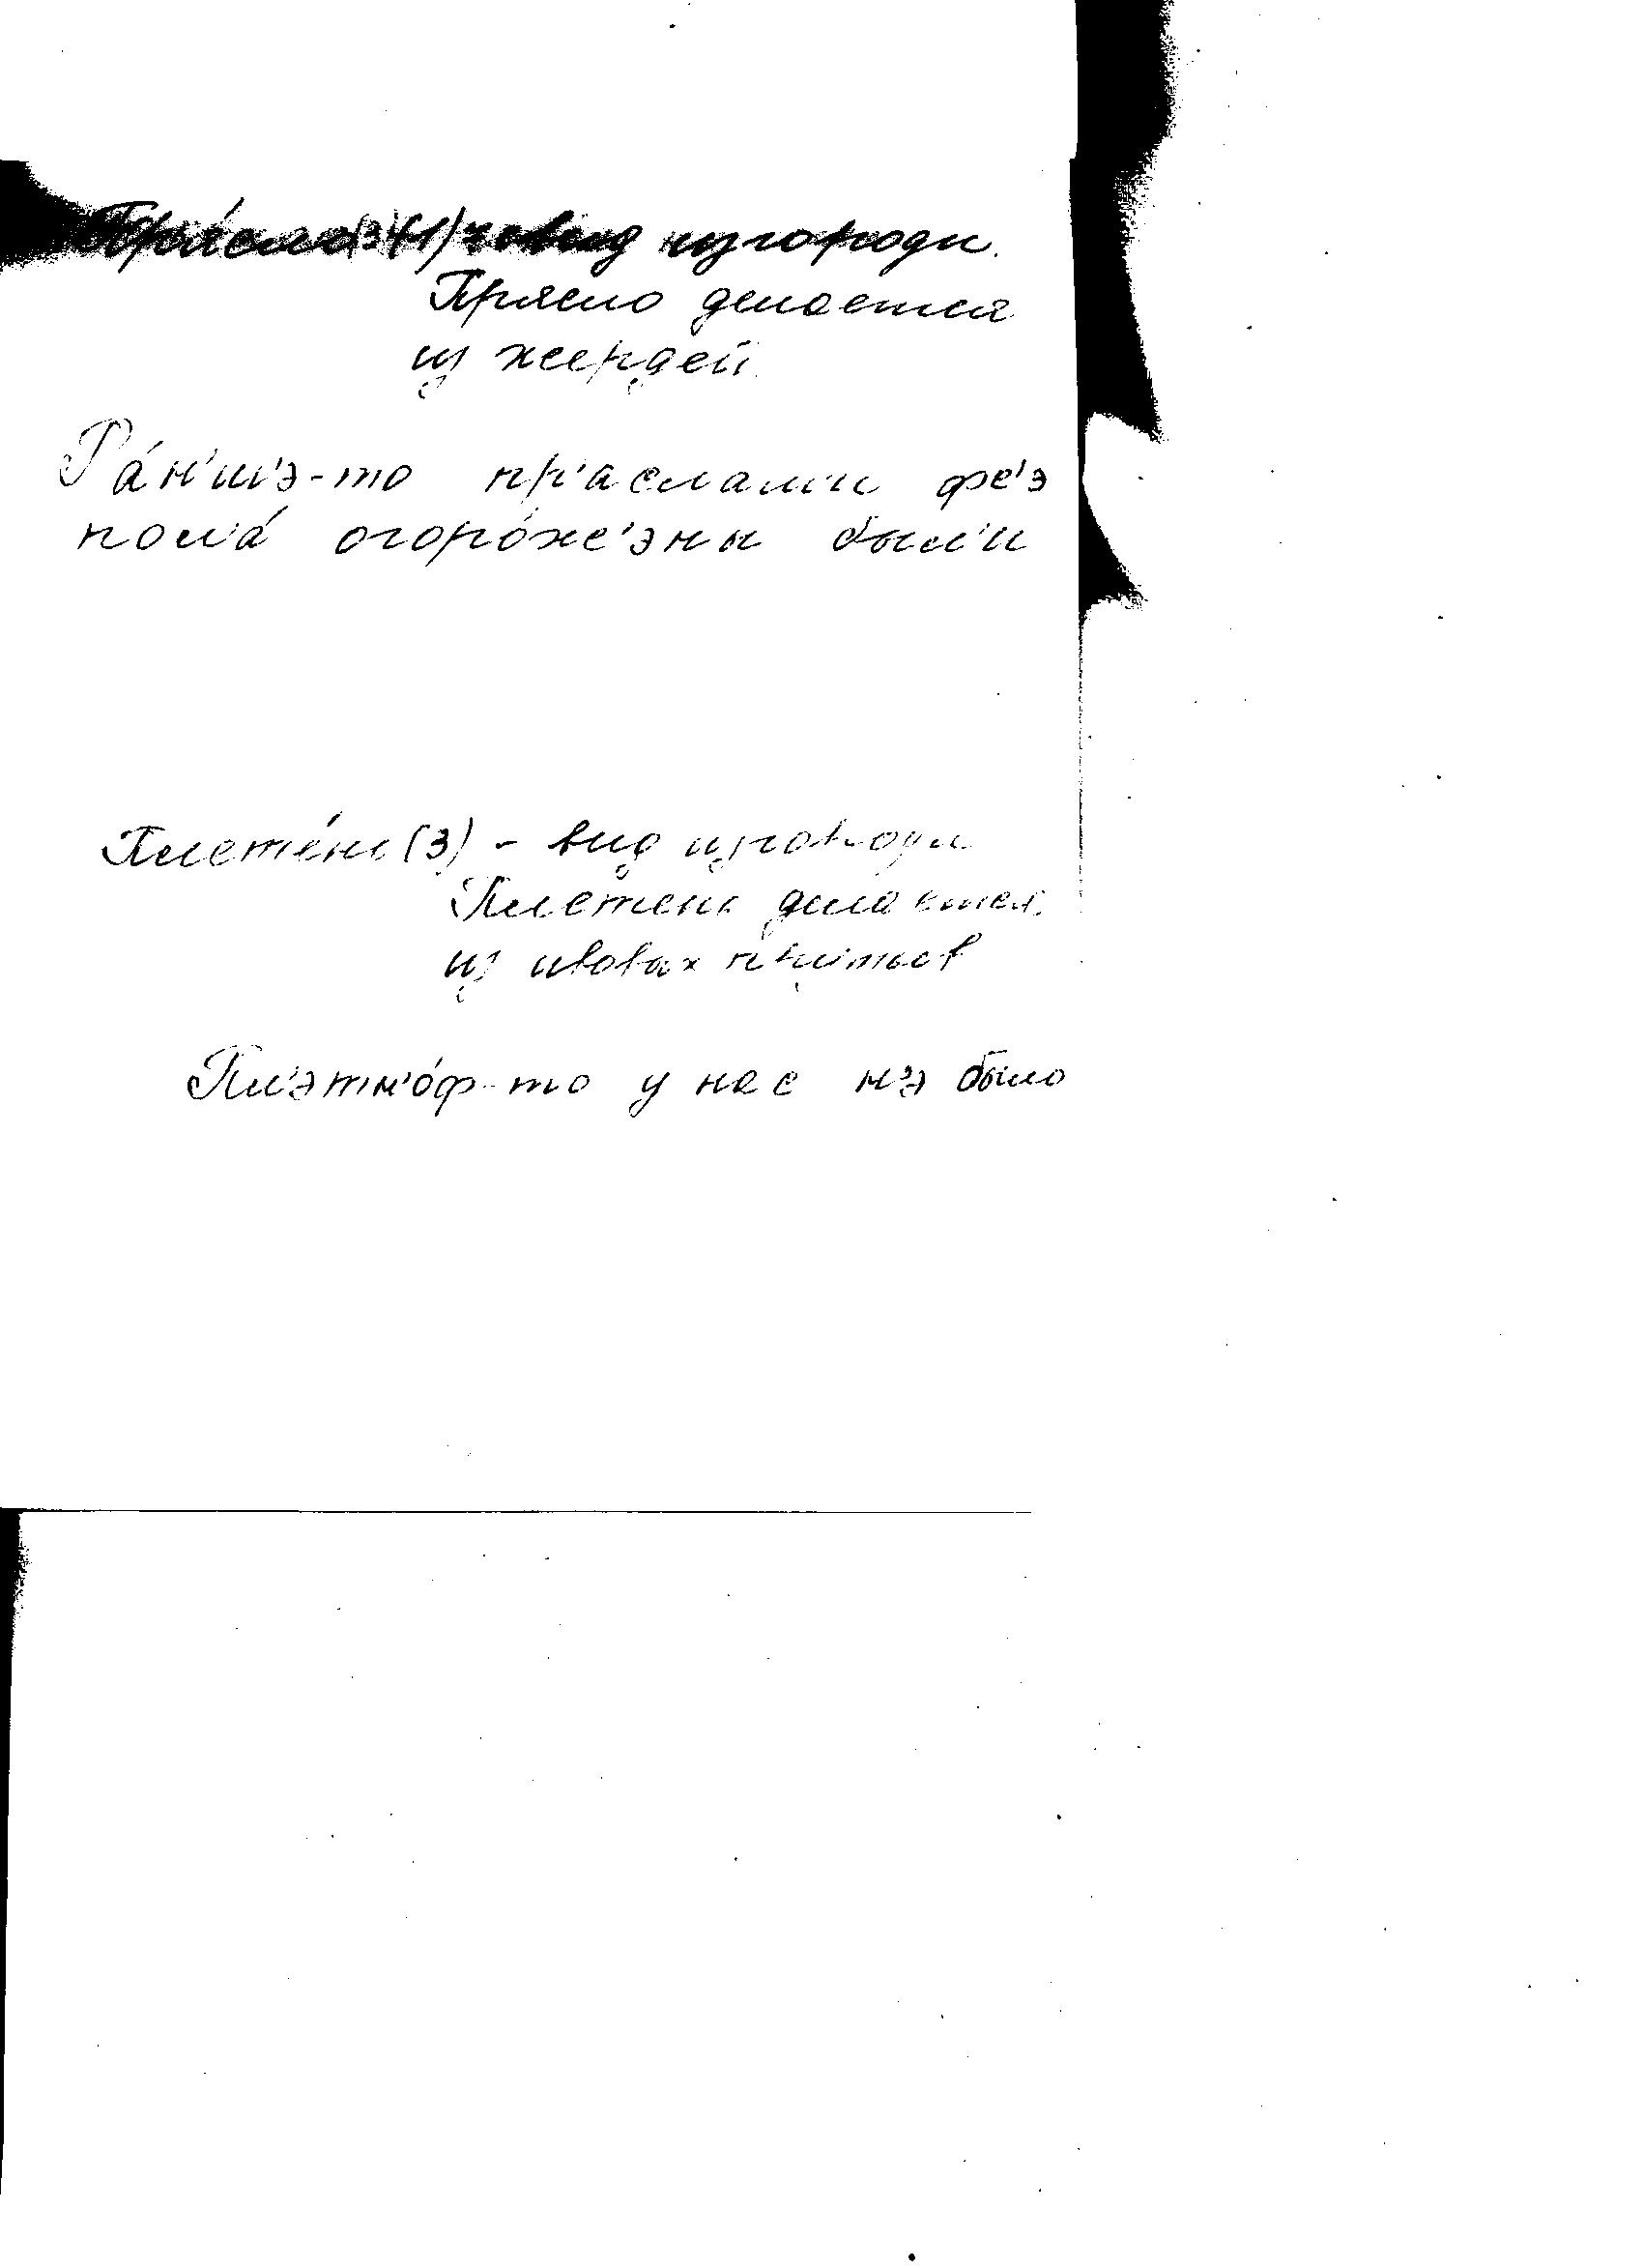 Пря́сло (3) (1) вид изгороди.
Прясло делается
из жердей.
Ра́н'ш'э-то пр'аслам'и фс'э
пол'а́ огоро́жс'эны был'и
Плете́нь (3) - вид изгороди
Плетень делается
из ивовых прутьев
Пл'этн'о́ф-то у нас н'э было